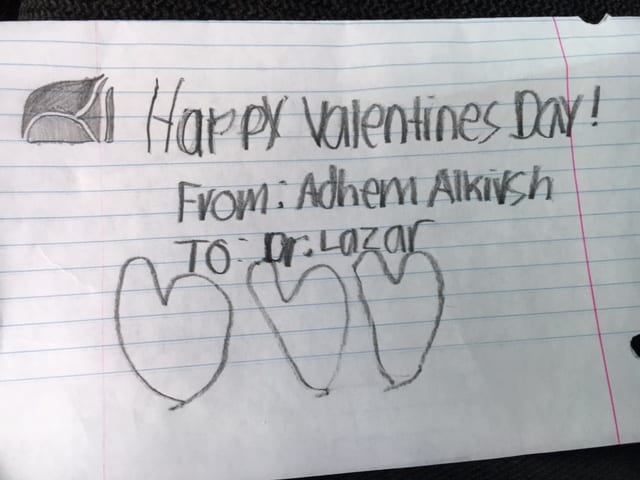 Happy Valentines Day!
From: Adhem Alkirsh
To: Dr. Lazar